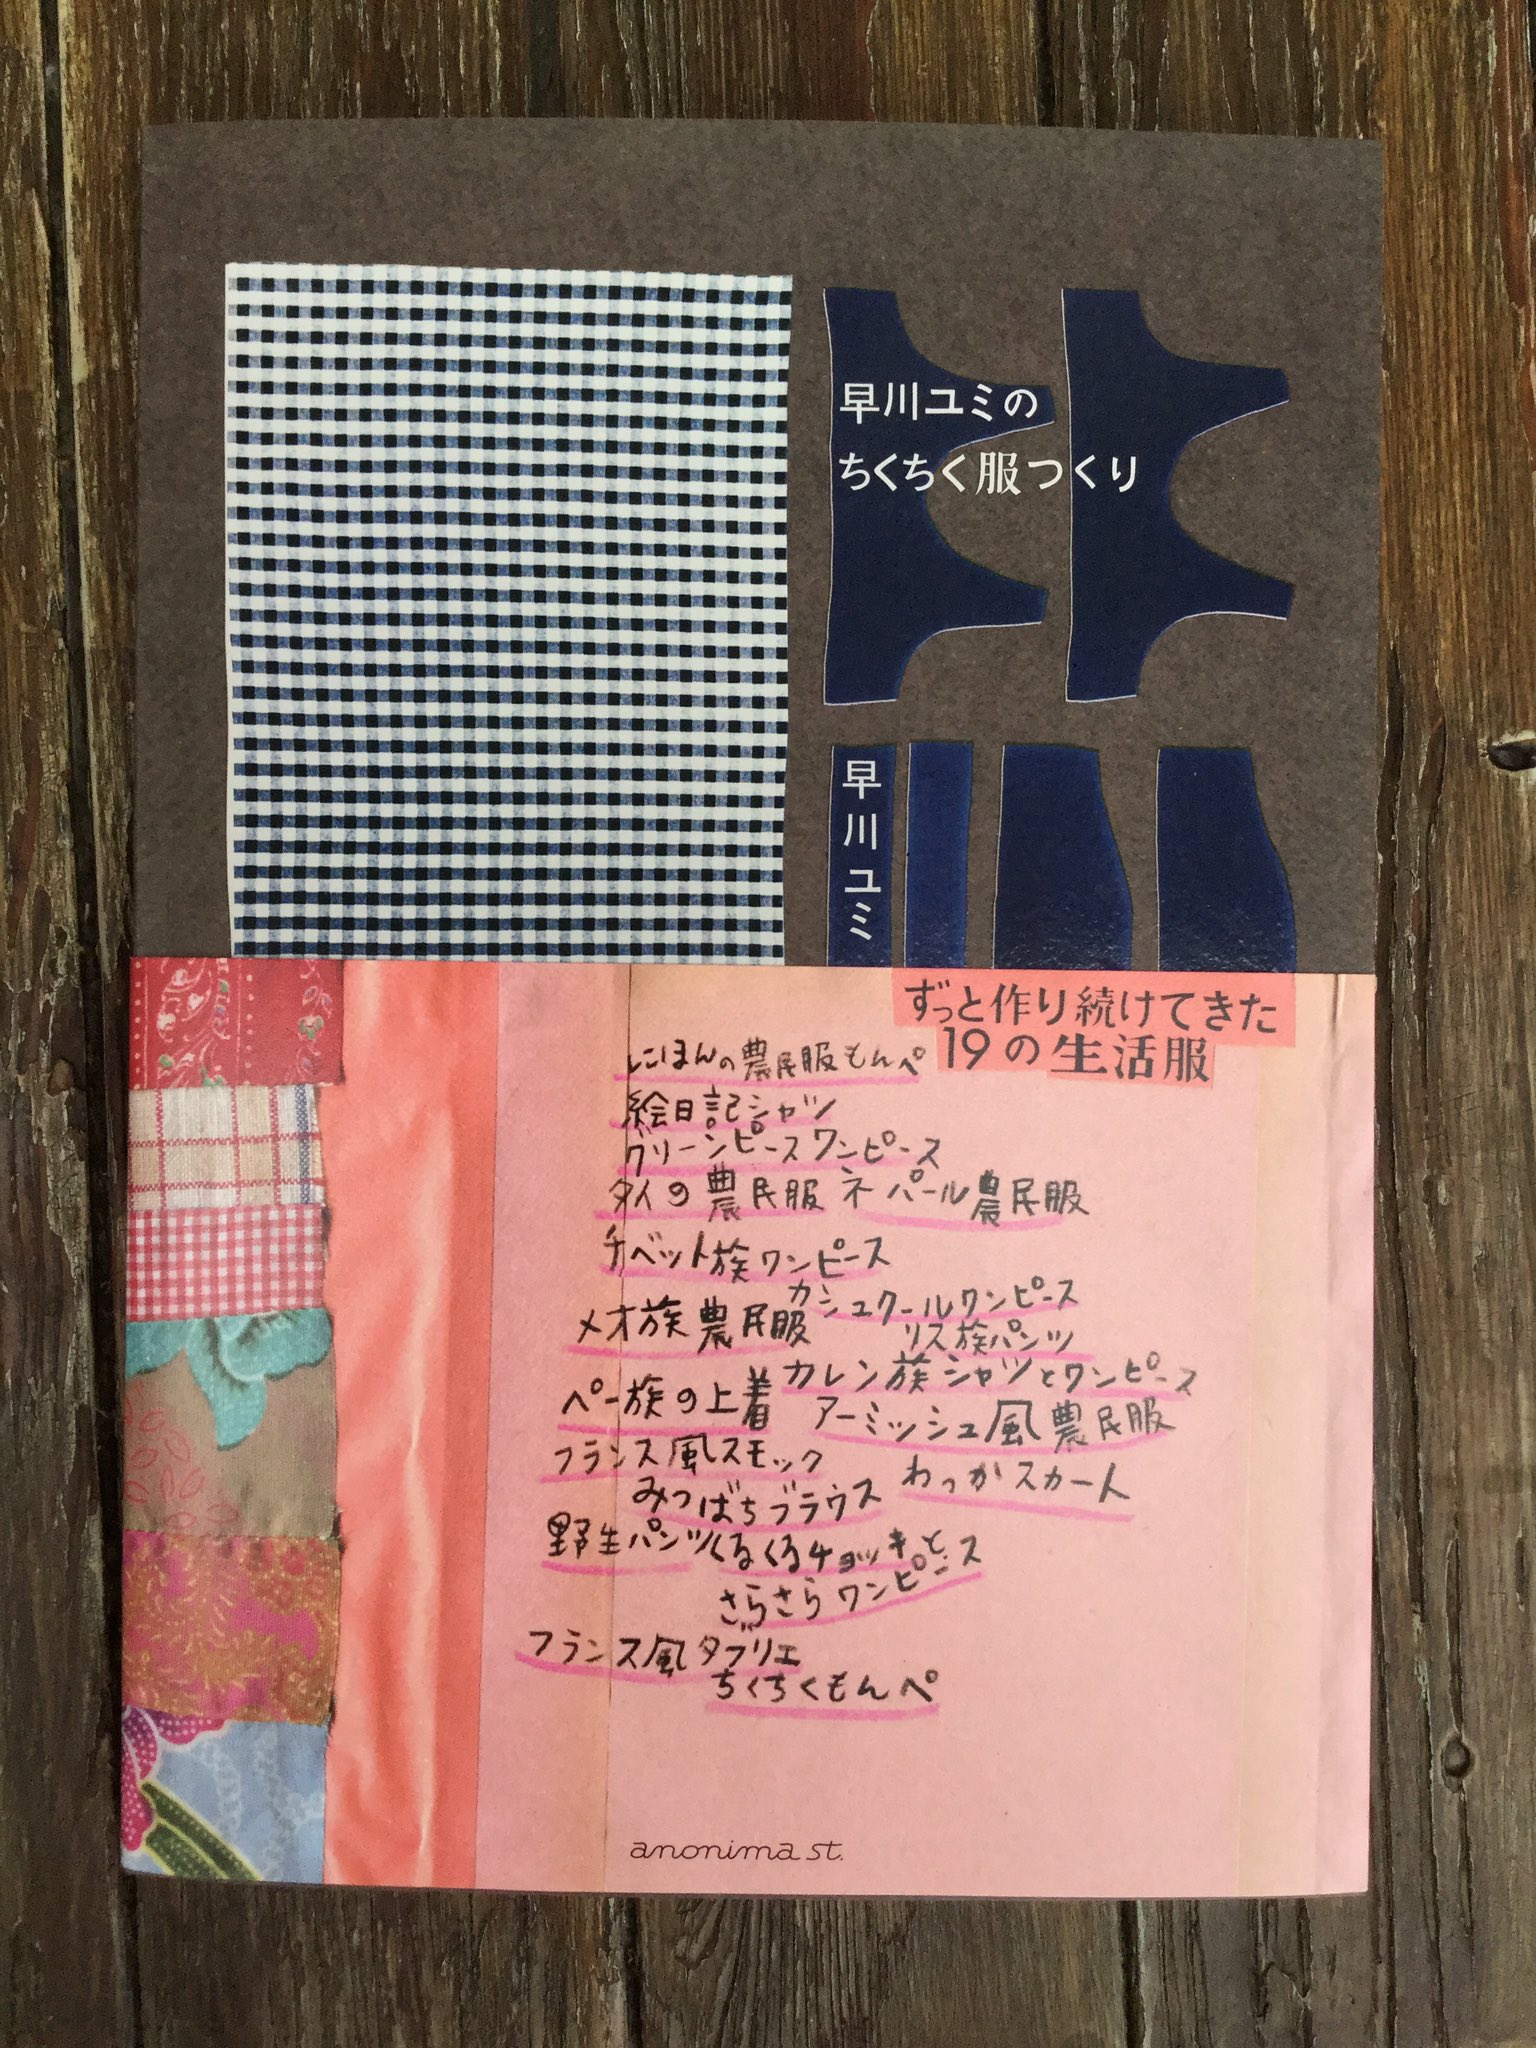 早川ユミの
ちくちく服つくり
早川ユミ
ずっと作り続けてきた
19の生活服
にほんの農民服もんぺ
絵日記シャツ
グリーンピースワンピース
タイの農民服 ネパール農民服
チベット族ワンピース
カシュクールワンピース
メオ族農民服
リス族パンツ
カレン族シャツとワンピース
ペー族の上着
アーミッシュ風農民服
フランス風スモック
わっかスカート
みつばちブラウス
野生パンツ くるくるチョッキと
さらさらワンピース
フランス風タブリエ
ちくちくもんぺ
anonima st.